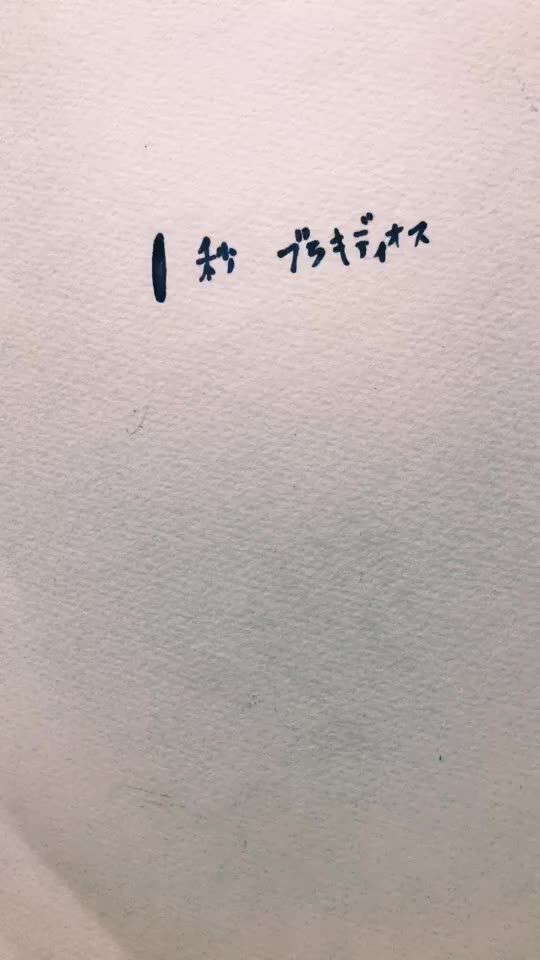 1秒 ブラキディオス